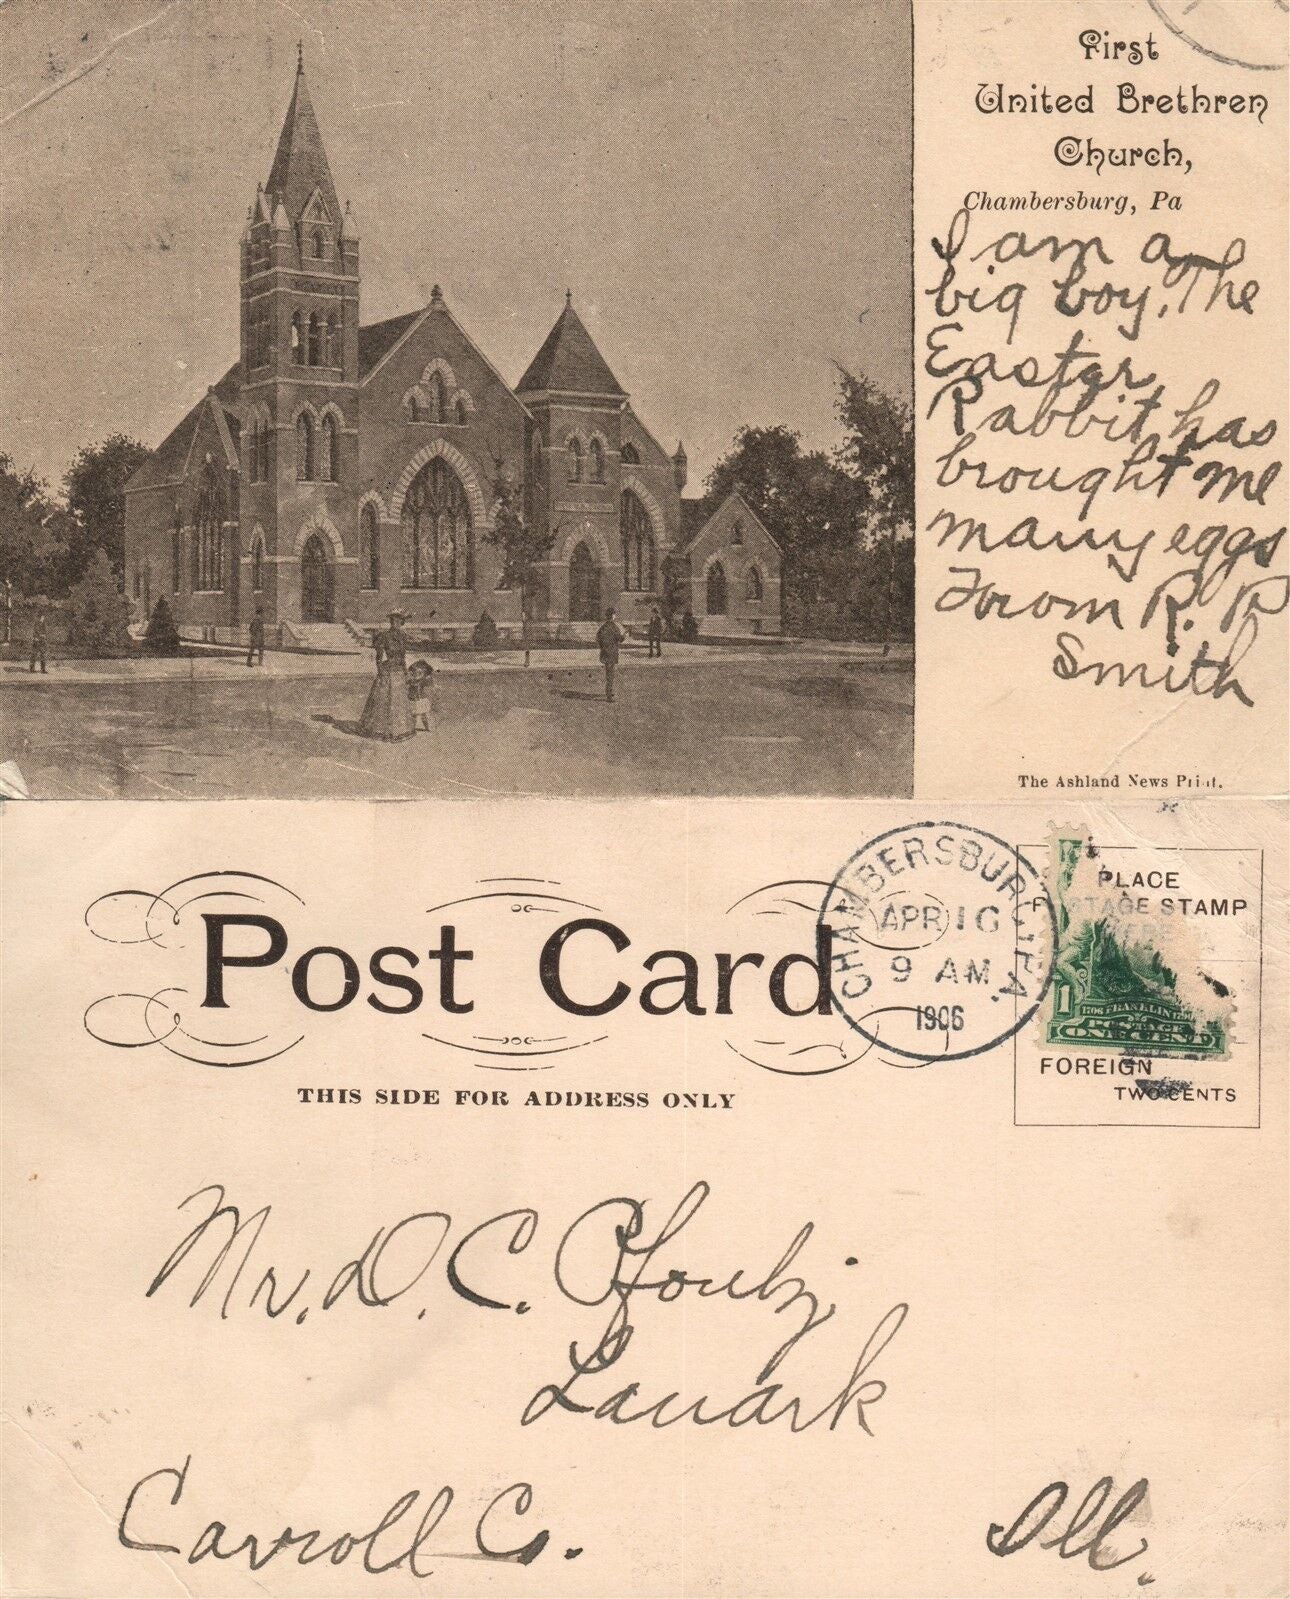 First
United Brethren
Church,
Chambersburg, Pa
I am a
big boy. The
Easter
Rabbit has
brought me
many eggs
From R. R
Smith
The Ashland News Print.
Post Card
THIS SIDE FOR ADDRESS ONLY
CHAMBERSBURG, PA.
APR 16
9 AM
1906
PLACE
POSTAGE STAMP
HERE
1
1706 FRANKLIN 1790
POSTAGE
ONE CENT
FOREIGN
TWO CENTS
Mr. D. C. Pfoutz,
Lanark
Carroll Co. Ill.